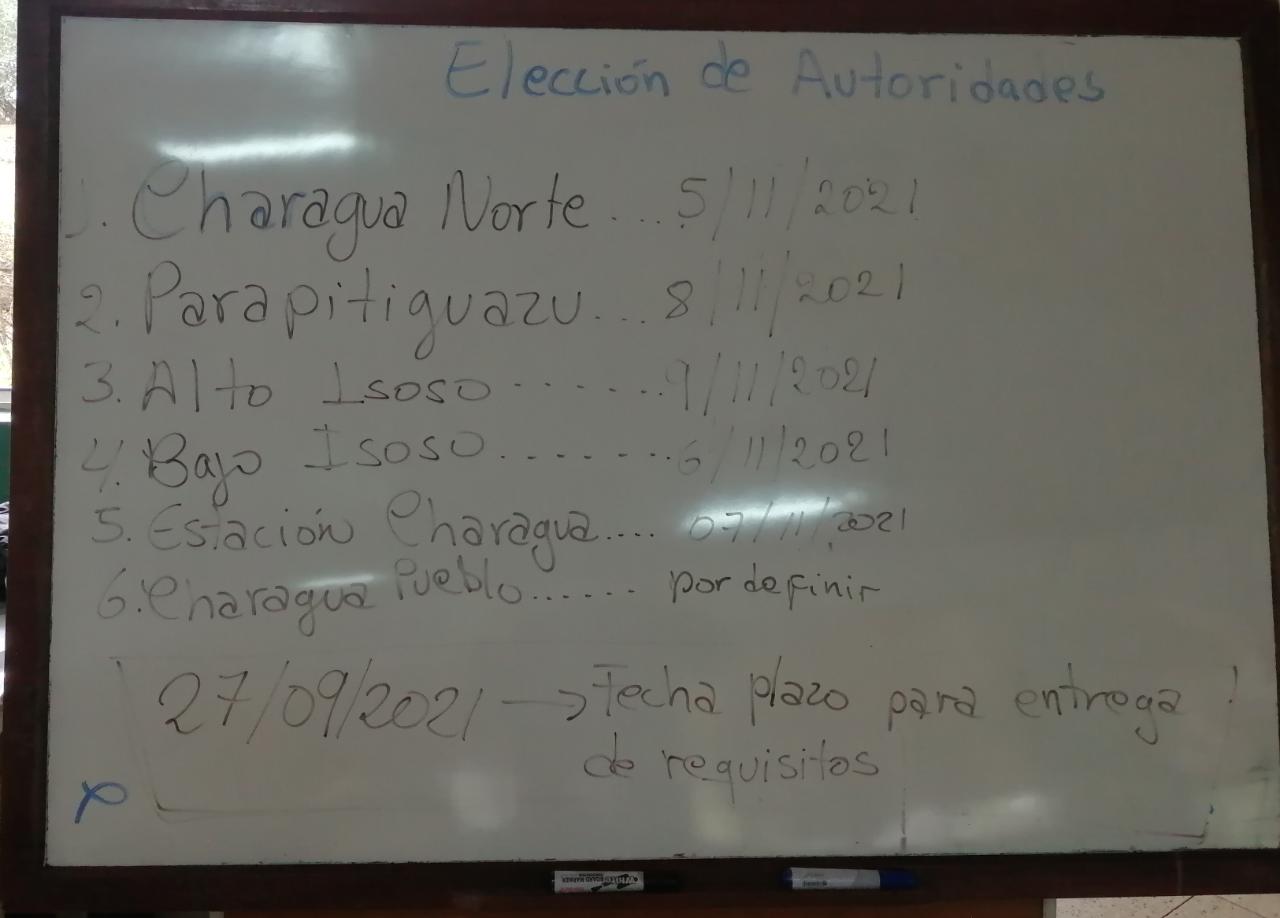 Elección de Autoridades
1. Charagua Norte....5/11/2021
2. Parapitiguazu....8/11/2021
3. Alto Isoso.......9/11/2021
4. Bajo Isoso........6/11/2021
5. Estación Charagua.... 07/11/2021
6. Charagua Pueblo...... por definir
27/09/2021 → Fecha plazo para entrega
de requisitos